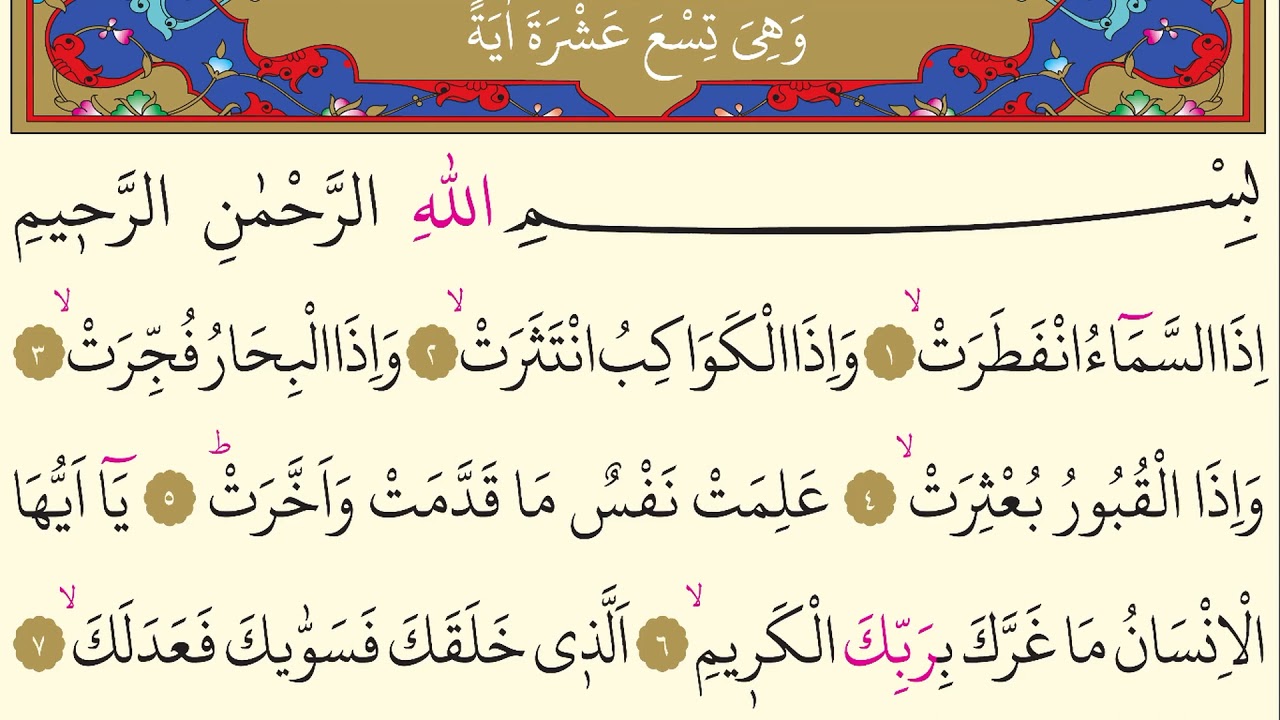 وَهِىَ تِسْعَ عَشْرَةَ اٰيَةً
بِسْمِ اللّٰهِ الرَّحْمٰنِ الرَّح۪يمِ
اِذَا السَّمَٓاءُ انْفَطَرَتْۙ ١ وَاِذَا الْكَوَاكِبُ انْتَثَرَتْۙ ٢ وَاِذَا الْبِحَارُ فُجِّرَتْۙ ٣
وَاِذَا الْقُبُورُ بُعْثِرَتْۙ ٤ عَلِمَتْ نَفْسٌ مَا قَدَّمَتْ وَاَخَّرَتْۜ ٥ يَٓا اَيُّهَا
الْاِنْسَانُ مَا غَرَّكَ بِرَبِّكَ الْكَر۪يمِۙ ٦ اَلَّذ۪ى خَلَقَكَ فَسَوّٰيكَ فَعَدَلَكَۙ ٧